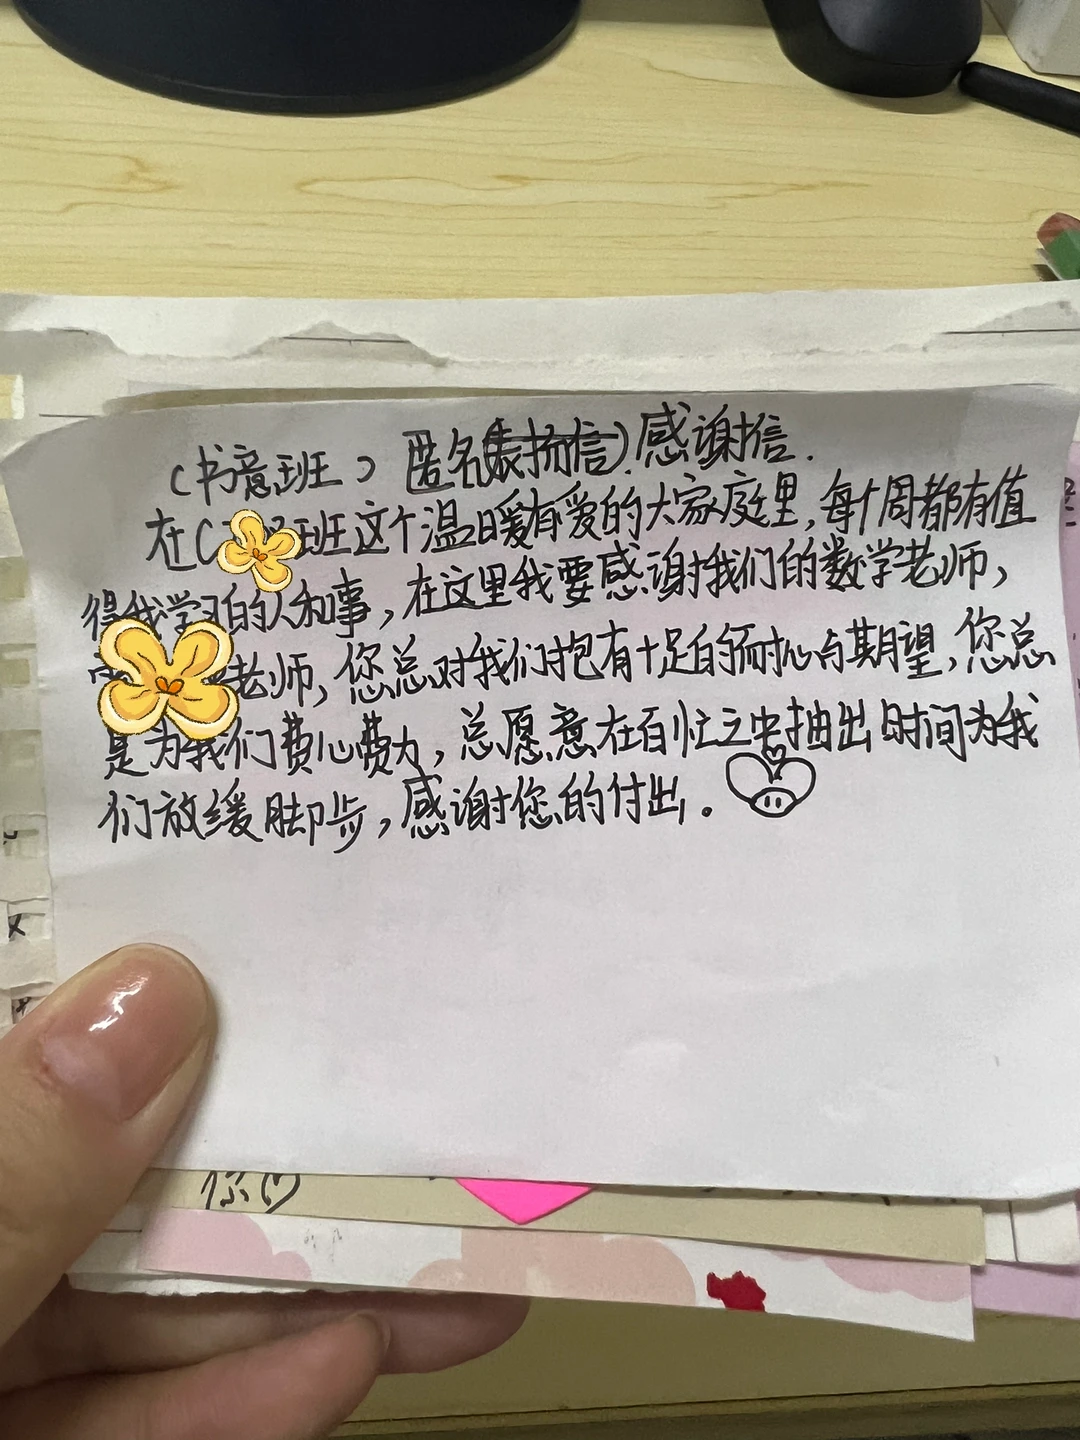 （书意班） 匿名（表扬信）感谢信.
在C班这个温暖有爱的大家庭里,每个周都有值
得我学习的人和事,在这里我要感谢我们的数学老师,
老师,您总对我们抱有十足的耐心与期望,您总
是为我们费心费力,总愿意在百忙之中抽出时间为我
们放缓脚步,感谢您的付出。
你